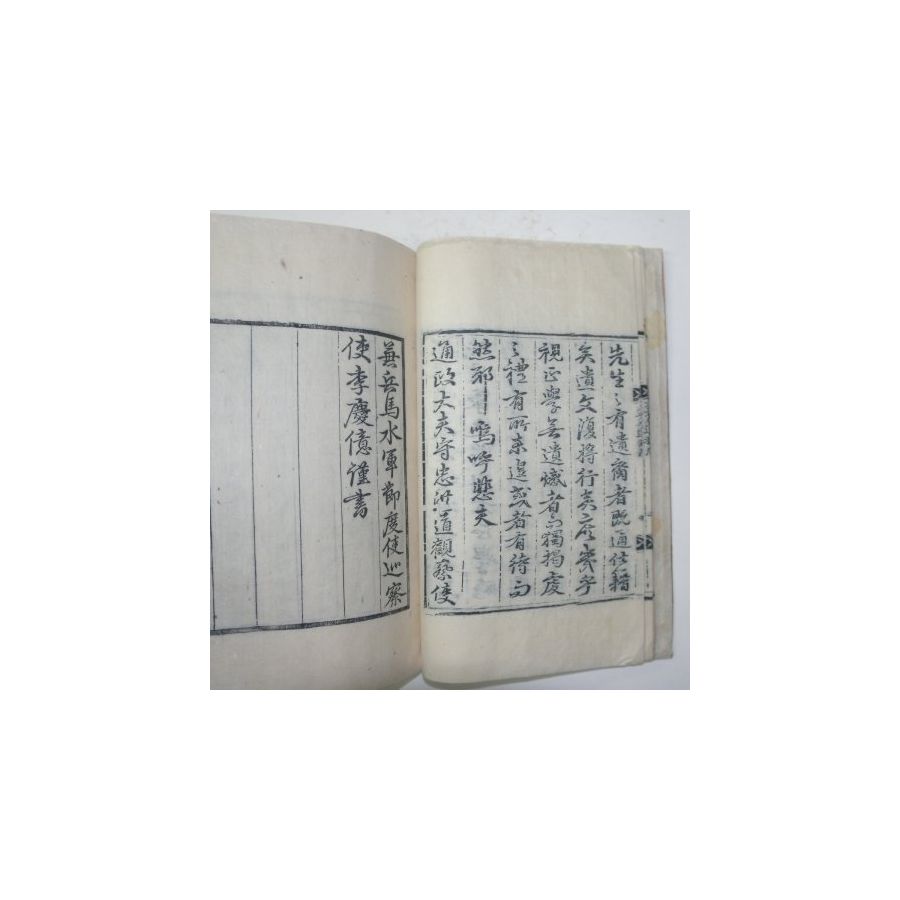 先生之有遺裔者既通仕籍
矣遺文復將行矣庶幾乎
視正學無遺憾者而獨揭虔
之禮有所未遑或者有待而
然邪嗚呼悲夫
通政大夫守忠洪道觀察使
兼兵馬水軍節度使巡察
使李慶億謹書